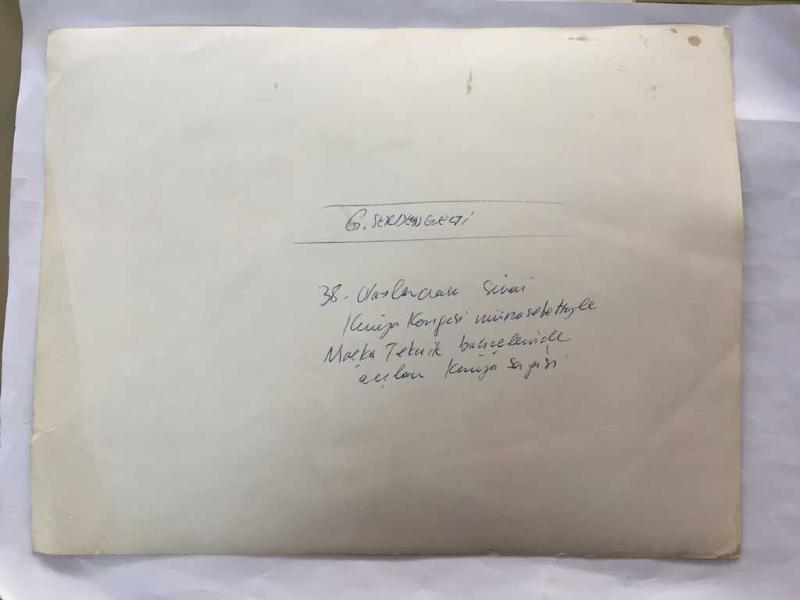 G. SERDENGEÇTİ
38. Uluslararası Sınai
Kimya Kongresi münasebetiyle
Maçka Teknik bahçelerinde
açılan Kimya Sergisi